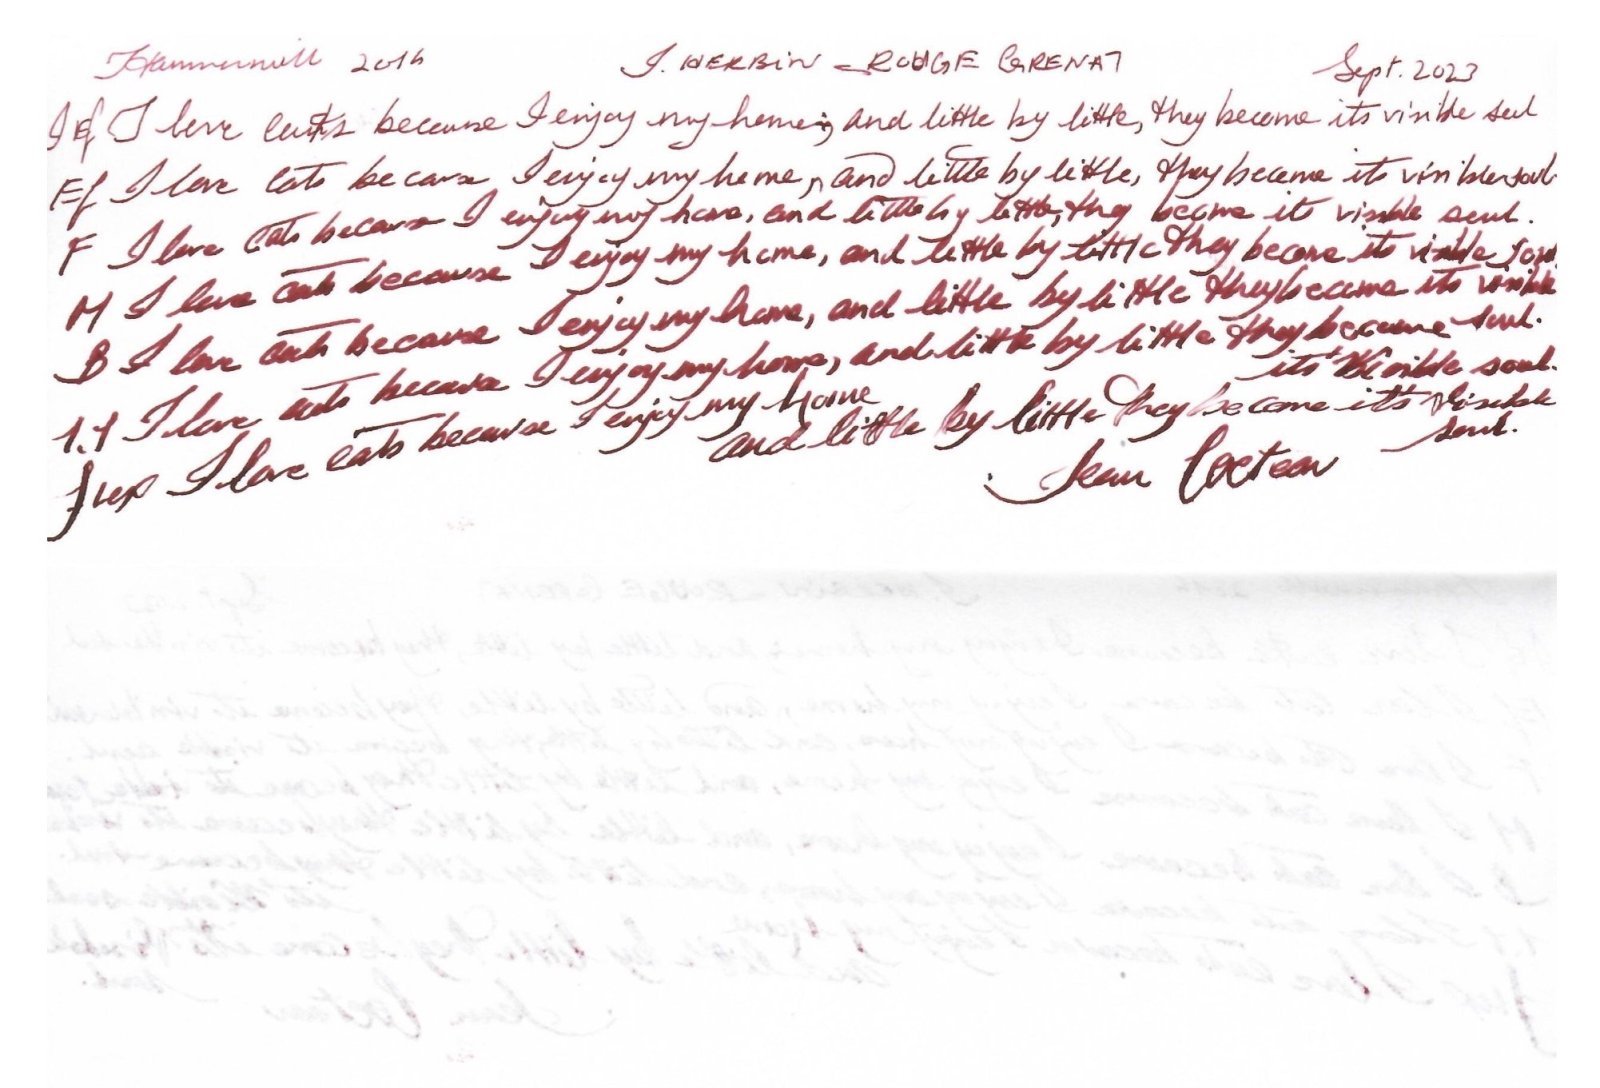 Hammermill 20lb J. HERBIN - ROUGE GRENAT Sept. 2023
I Ef I love cats because I enjoy my home, and little by little, they become its visible soul
Ef I love cats because I enjoy my home, and little by little, they become its visible soul
F I love cats because I enjoy my home, and little by little, they become its visible soul.
M I love cats because I enjoy my home, and little by little they become its visible soul.
B I love cats because I enjoy my home, and little by little they become its visible soul.
1.1 I love cats because I enjoy my home, and little by little they become
its visible soul.
flex I love cats because I enjoy my home
and little by little they become its visible
soul.
Jean Cocteau